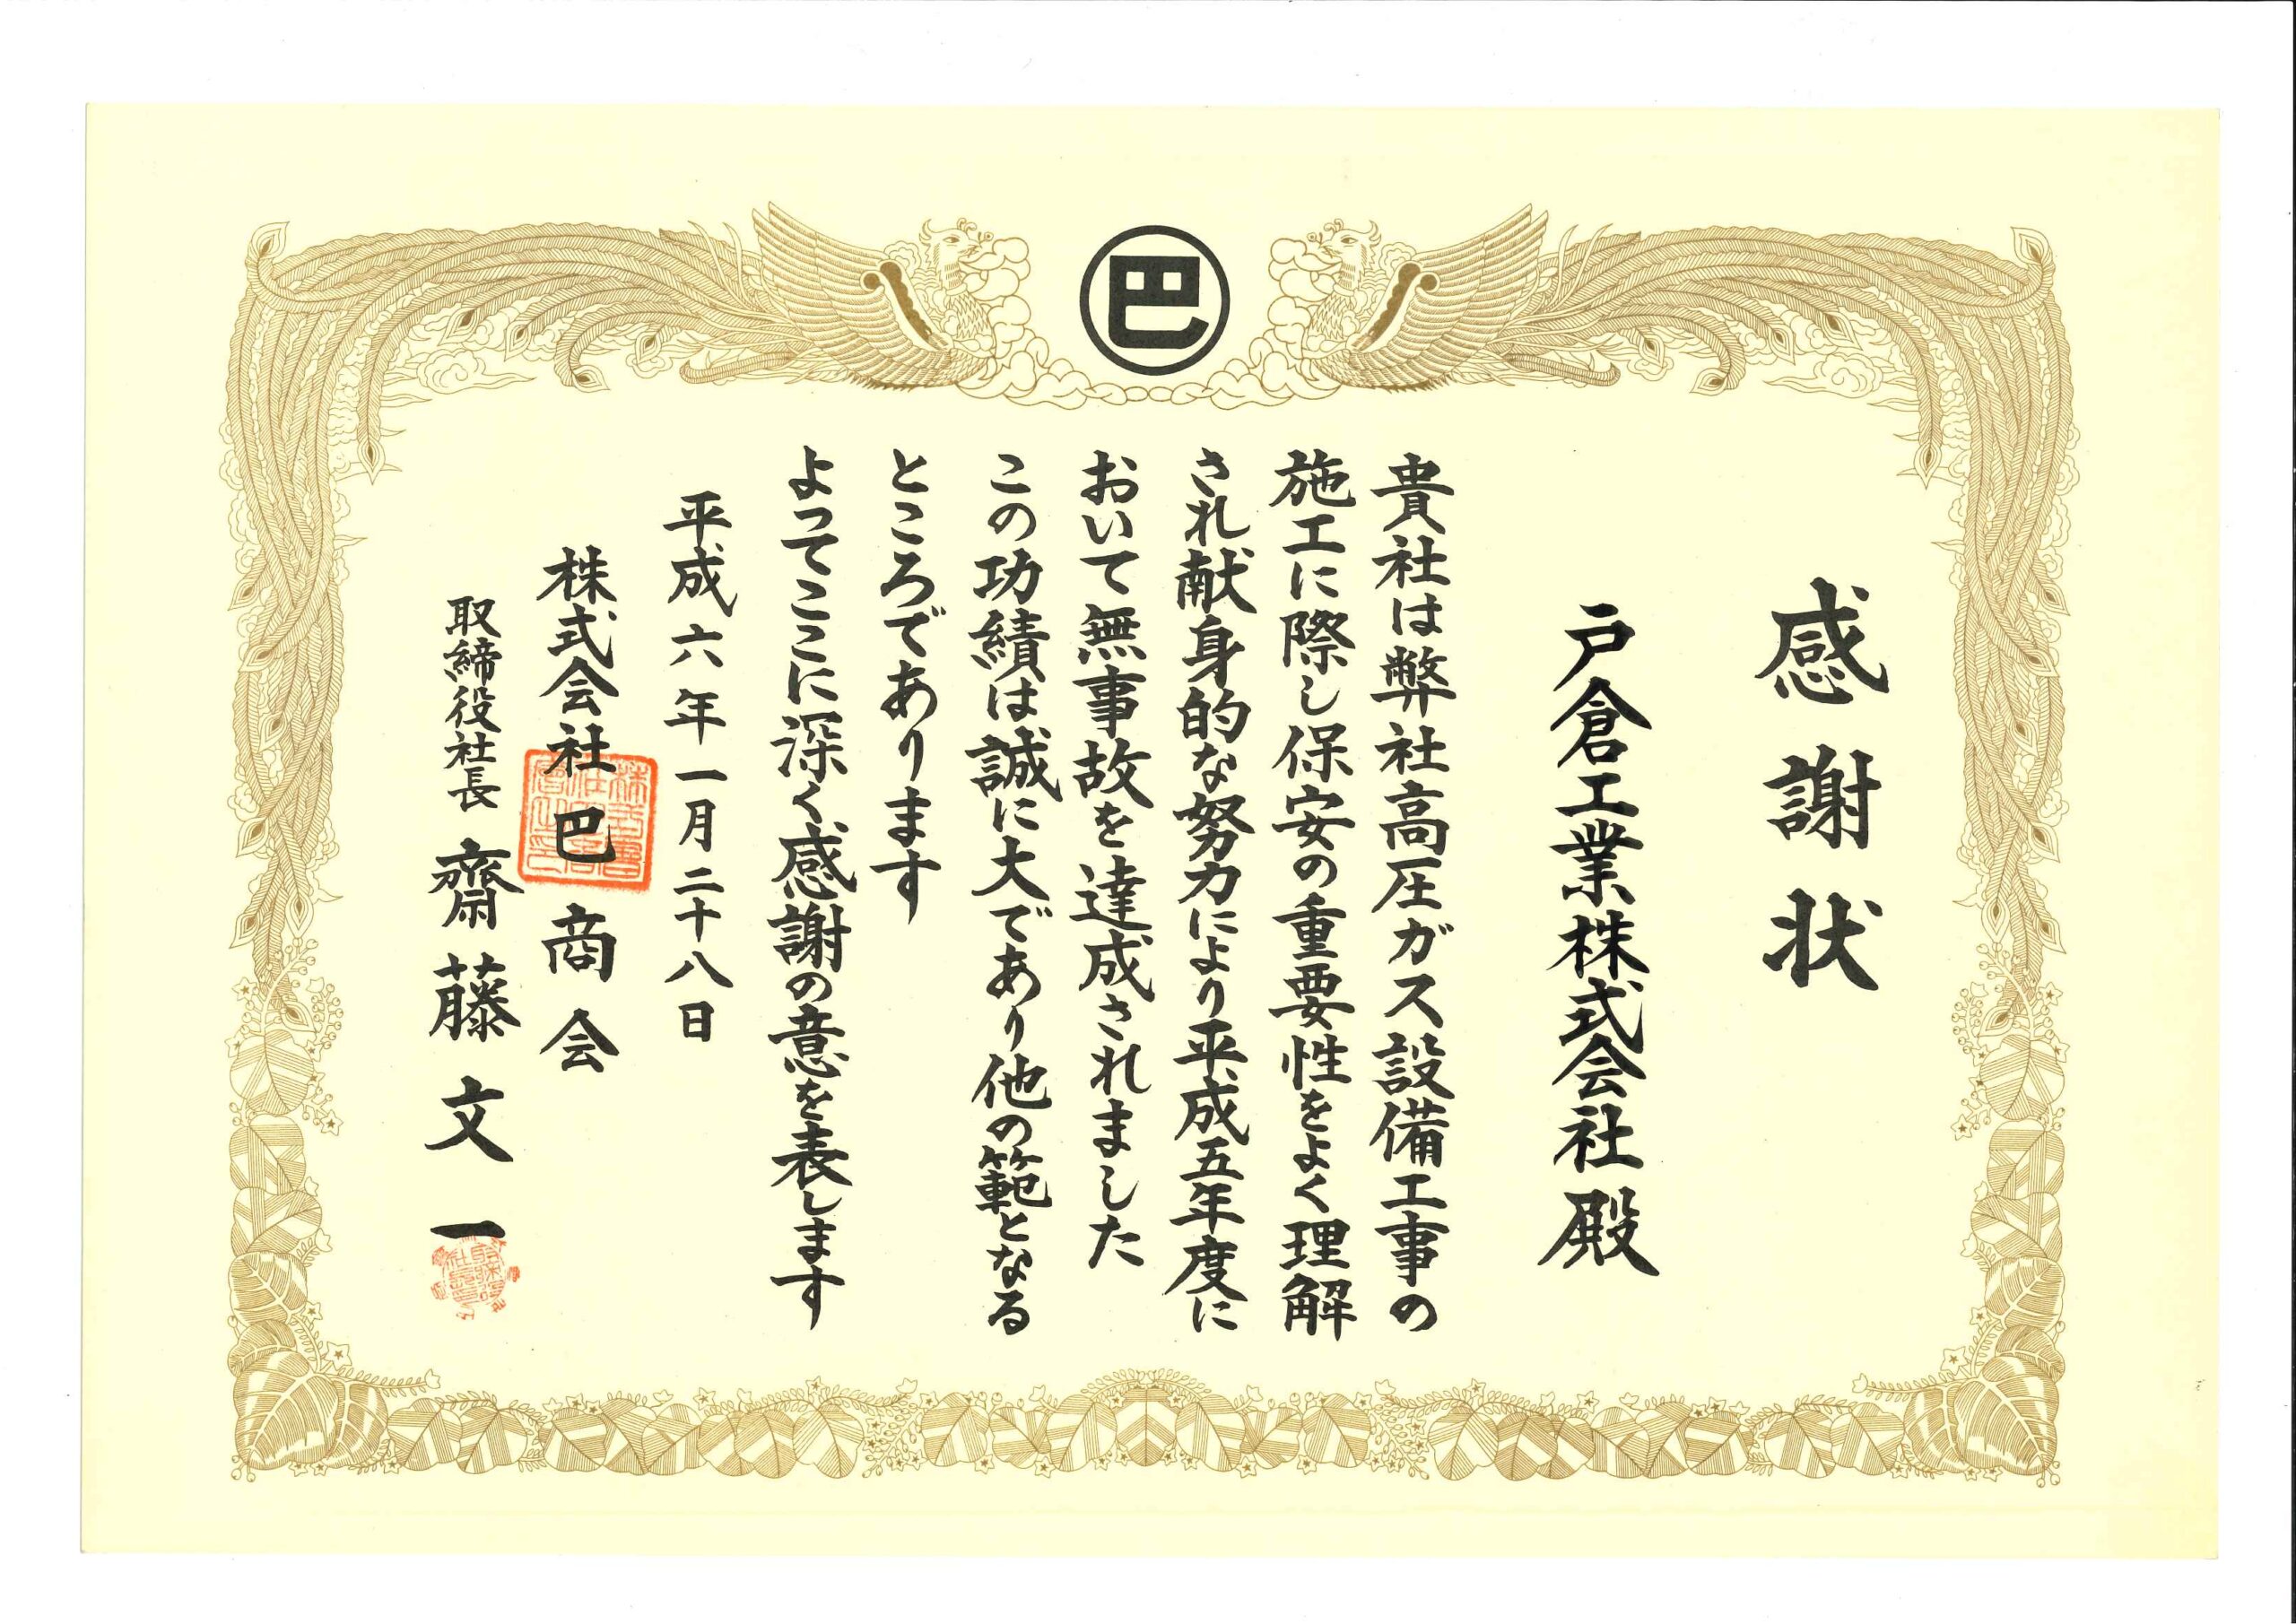 巴
感謝状
戸倉工業株式会社殿
貴社は弊社高圧ガス設備工事の
施工に際し保安の重要性をよく理解
され献身的な努力により平成五年度に
おいて無事故を達成されました
この功績は誠に大であり他の範となる
ところであります
よってここに深く感謝の意を表します
平成六年一月二十八日
株式会社巴商会
取締役社長 齋藤文一